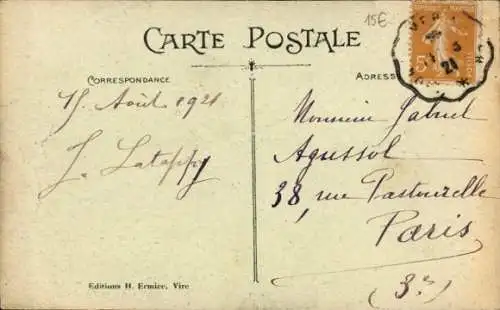 15€
CARTE POSTALE
CORRESPONDANCE
ADRESS
15 Août 1921
J. Latappy
Monsieur Gabriel
Agussol
38, rue Pastourelle
Paris
(3e)
Editions H. Ermice, Vire
5
21